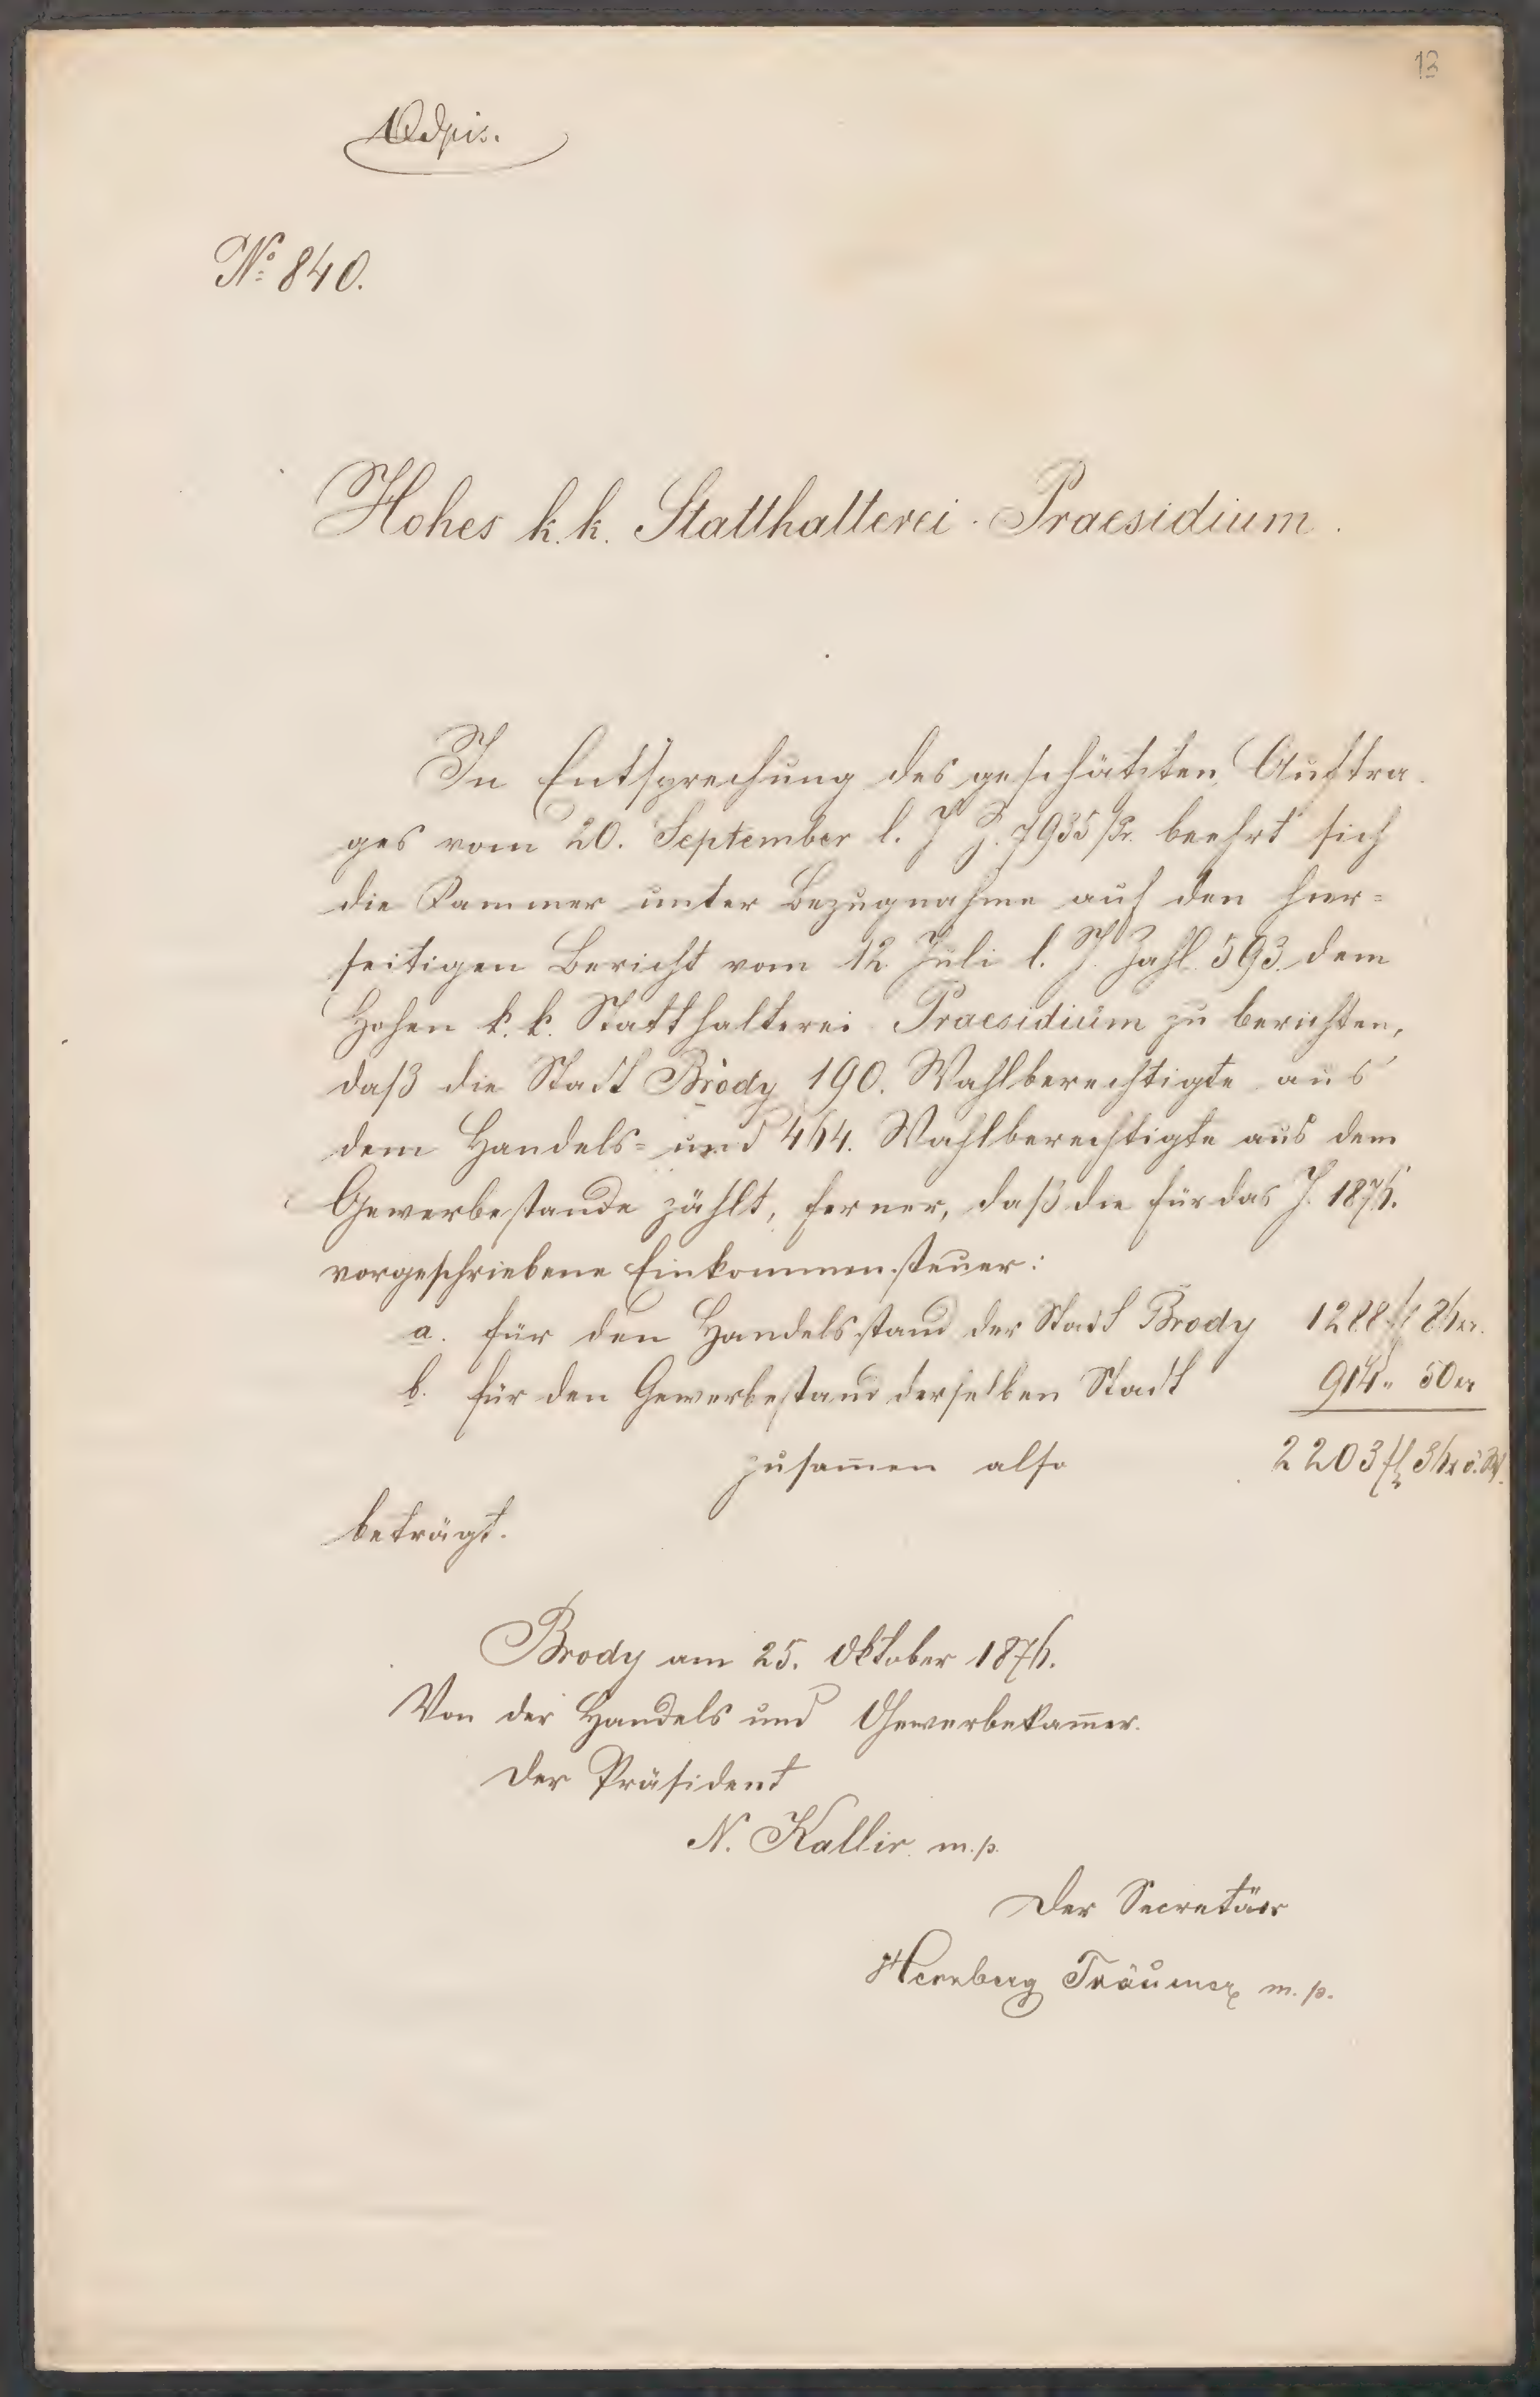 13
Odpis.
No 840.
Hohes k. k. Statthalterei-Praesidium.
In Entsprechung des geschätzten Auftra-
ges vom 20. September l. J. Z. 7935/Pr. beehrt sich
die Kammer unter Bezugnahme auf den hier=
seitigen Bericht vom 12 Juli l. J. Zahl 593. dem
Hohen k. k. Statthalterei Praesidium zu berichten,
daß die Stadt Brody 190. Wahlberechtigte aus
dem Handels= und 464. Wahlberechtigte aus dem
Gewerbestande zählt, ferner, daß die für das J. 1876.
vorgeschriebene Einkommensteuer:
a. für den Handelsstand der Stadt Brody 1288 fl 86 kr.
b. für den Gewerbestand derselben Stadt 914 „ 50 kr
zusam̄en also 2203 fl 36 kr ö. W.
beträgt.
Brody am 25. Oktober 1876.
Von der Handels und Gewerbekam̄er.
Der Präsident
N. Kallir m. p.
Der Secretär
Hernberg Träumer m. p.